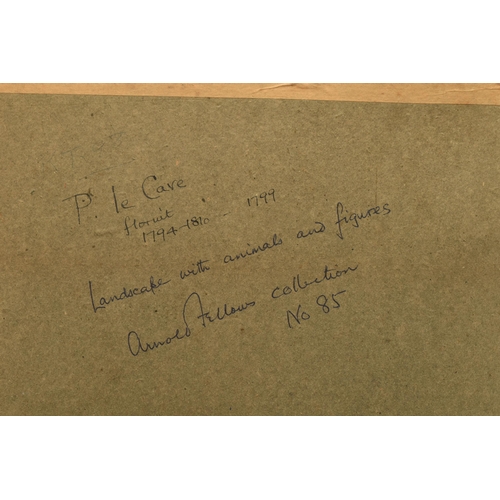 Pr. le Cave
floruit
1794-1810 - 1799
Landscape with animals and figures
Arnold Fellows collection
No 85